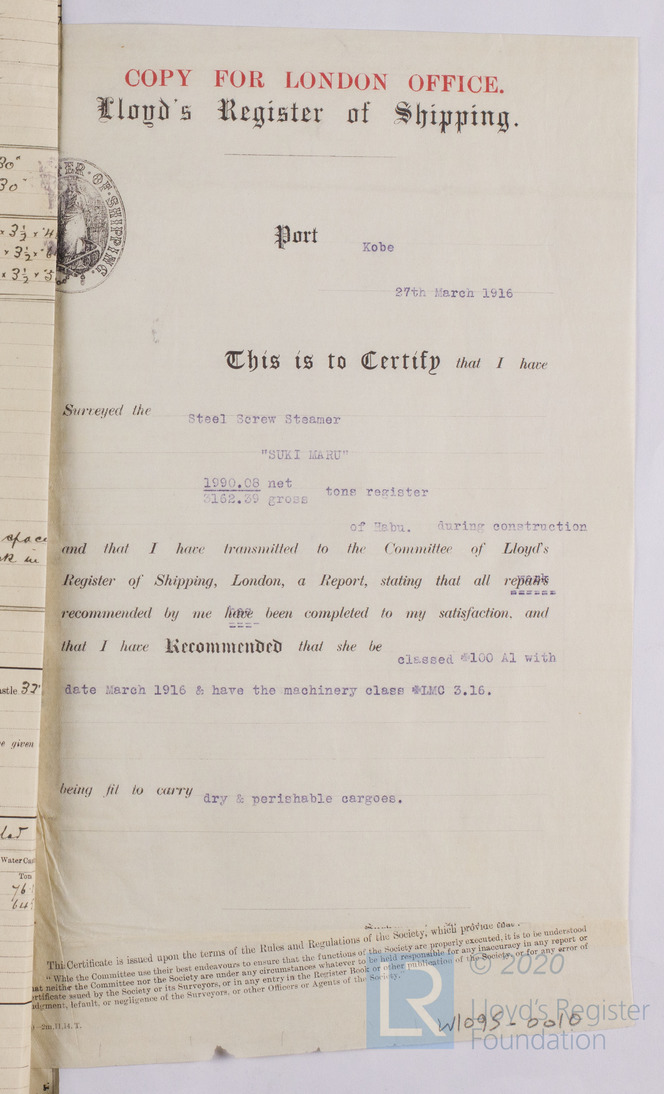 COPY FOR LONDON OFFICE.
Lloyd's Register of Shipping.
30"
30"
× 3½ × 4
× 3½ ×
× 3½ × 5
ER · OF · SHIPPING.
Port Kobe
27th March 1916
This is to Certify that I have
Surveyed the Steel Screw Steamer
"SUKI MARU"
1990.08 net
3162.39 gross tons register
of Habu. during construction
and that I have transmitted to the Committee of Lloyd's
Register of Shipping, London, a Report, stating that all repairs work
recommended by me have has been completed to my satisfaction, and
that I have Recommended that she be classed *100 A1 with
date March 1916 & have the machinery class *LMC 3.16.
being fit to carry dry & perishable cargoes.
stle 32'
e given
Water
Ton
76
64
This Certificate is issued upon the terms of the Rules and Regulations of the Society, which provide that:
"While the Committee use their best endeavours to ensure that the functions of the Society are properly executed, it is to be understood
that neither the Committee nor the Society are under any circumstances whatever to be held responsible for any inaccuracy in any report or
certificate issued by the Society or its Surveyors, or in any entry in the Register Book or other publication of the Society, or for any error of
judgment, default, or negligence of the Surveyors, or other Officers or Agents of the Society.
2m,11.14. T.
© 2020
LR
Lloyd's Register
Foundation
W1095-0010